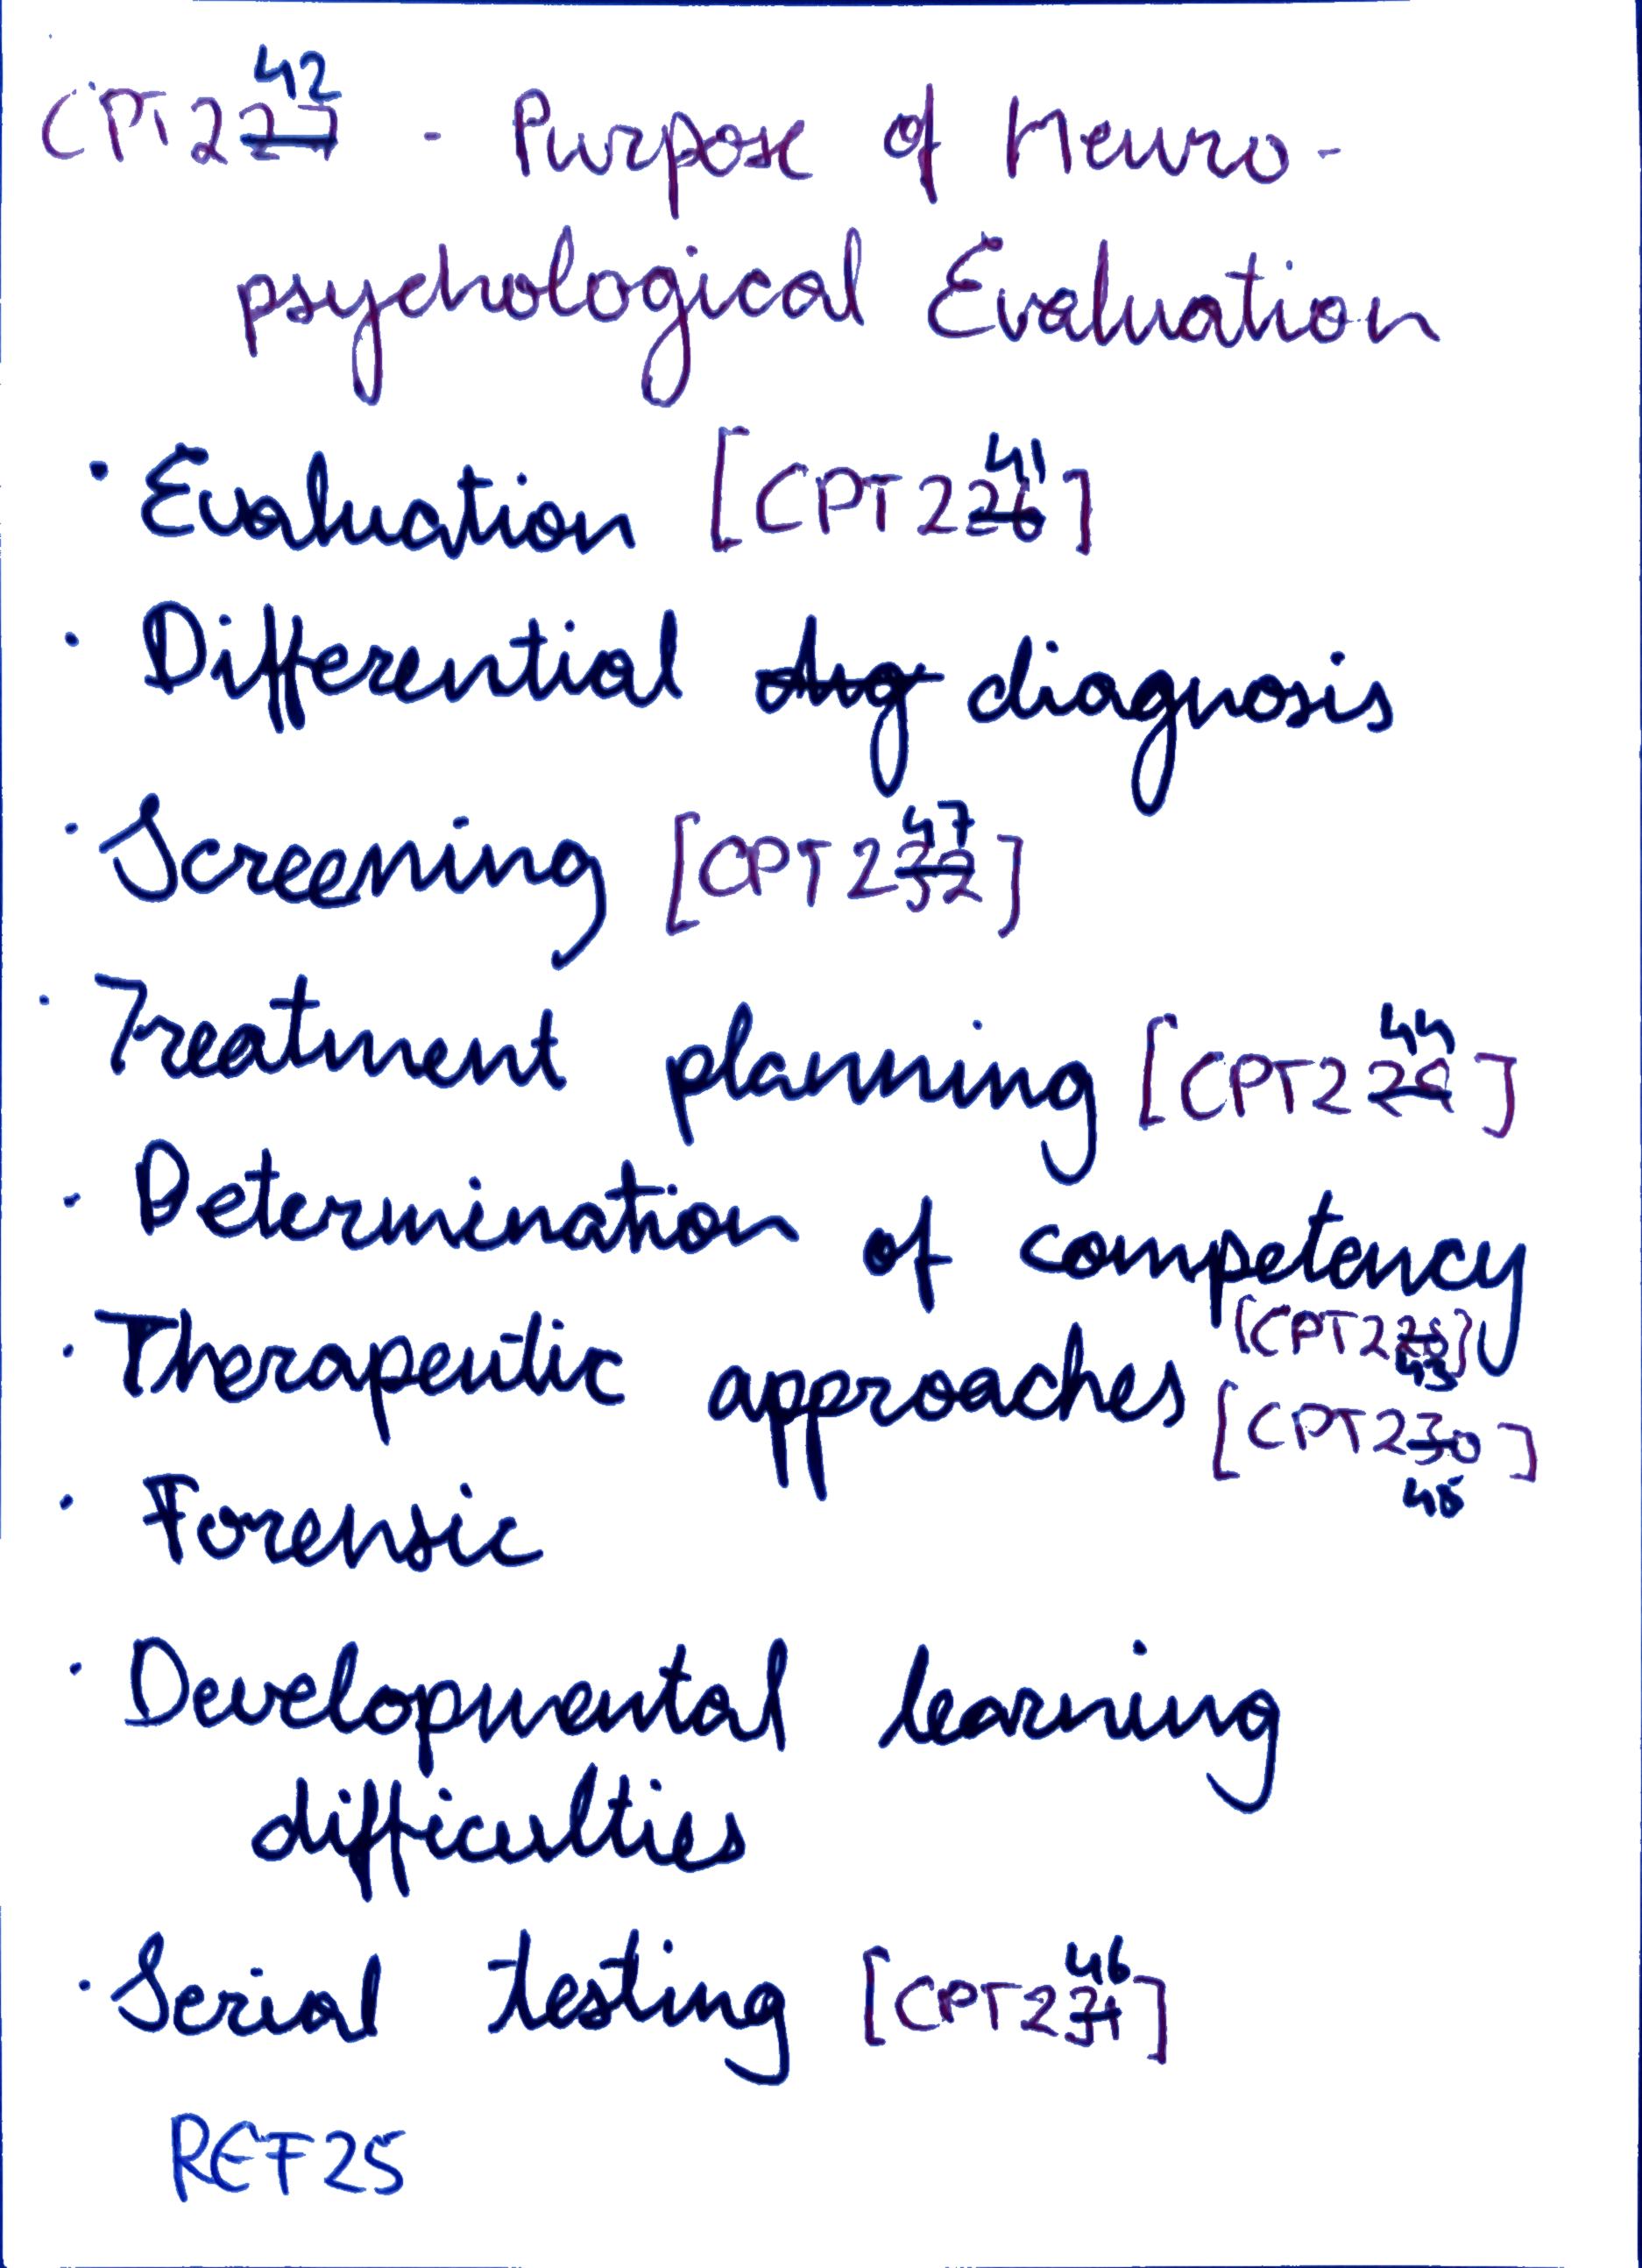 CPT2~~27~~ 42 - Purpose of Neuro-
psychological Evaluation
· Evaluation [CPT2~~26~~ 41]
· Differential ~~diag~~ diagnosis
· Screening [CPT2~~32~~ 47]
· Treatment planning [CPT2~~29~~ 44]
· Determination of competency
[CPT2~~28~~ 43]
· Therapeutic approaches [CPT2~~30~~ 45]
· Forensic
· Developmental learning
difficulties
· Serial testing [CPT2~~31~~ 46]
REF25